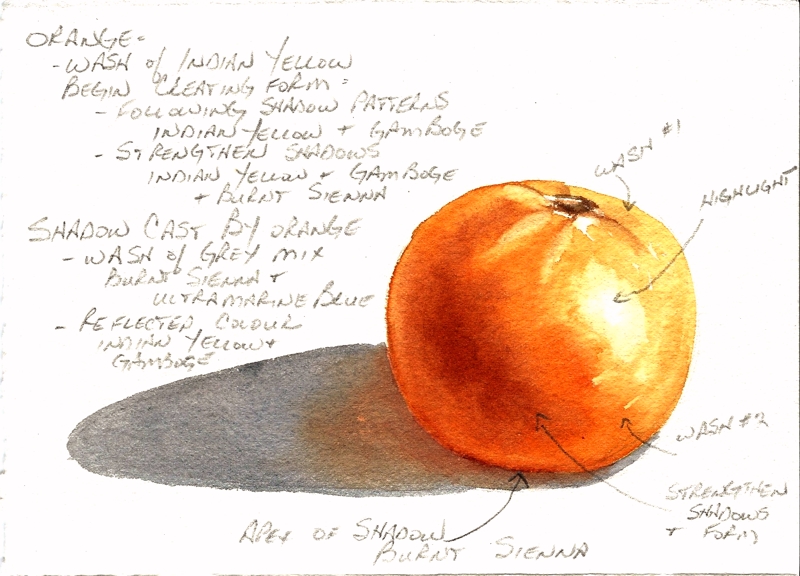 ORANGE-
- WASH of INDIAN YELLOW
BEGIN CREATING FORM:
- FOLLOWING SHADOW PATTERNS
INDIAN YELLOW + GAMBOGE
- STRENGTHEN SHADOWS
INDIAN YELLOW + GAMBOGE
+ BURNT SIENNA
SHADOW CAST BY ORANGE
- WASH of GREY MIX
BURNT SIENNA +
ULTRAMARINE BLUE
- REFLECTED COLOUR
INDIAN YELLOW +
GAMBOGE
WASH #1
HIGHLIGHT
WASH #2
STRENGTHEN
SHADOWS
+ FORM
APEX OF SHADOW
BURNT SIENNA